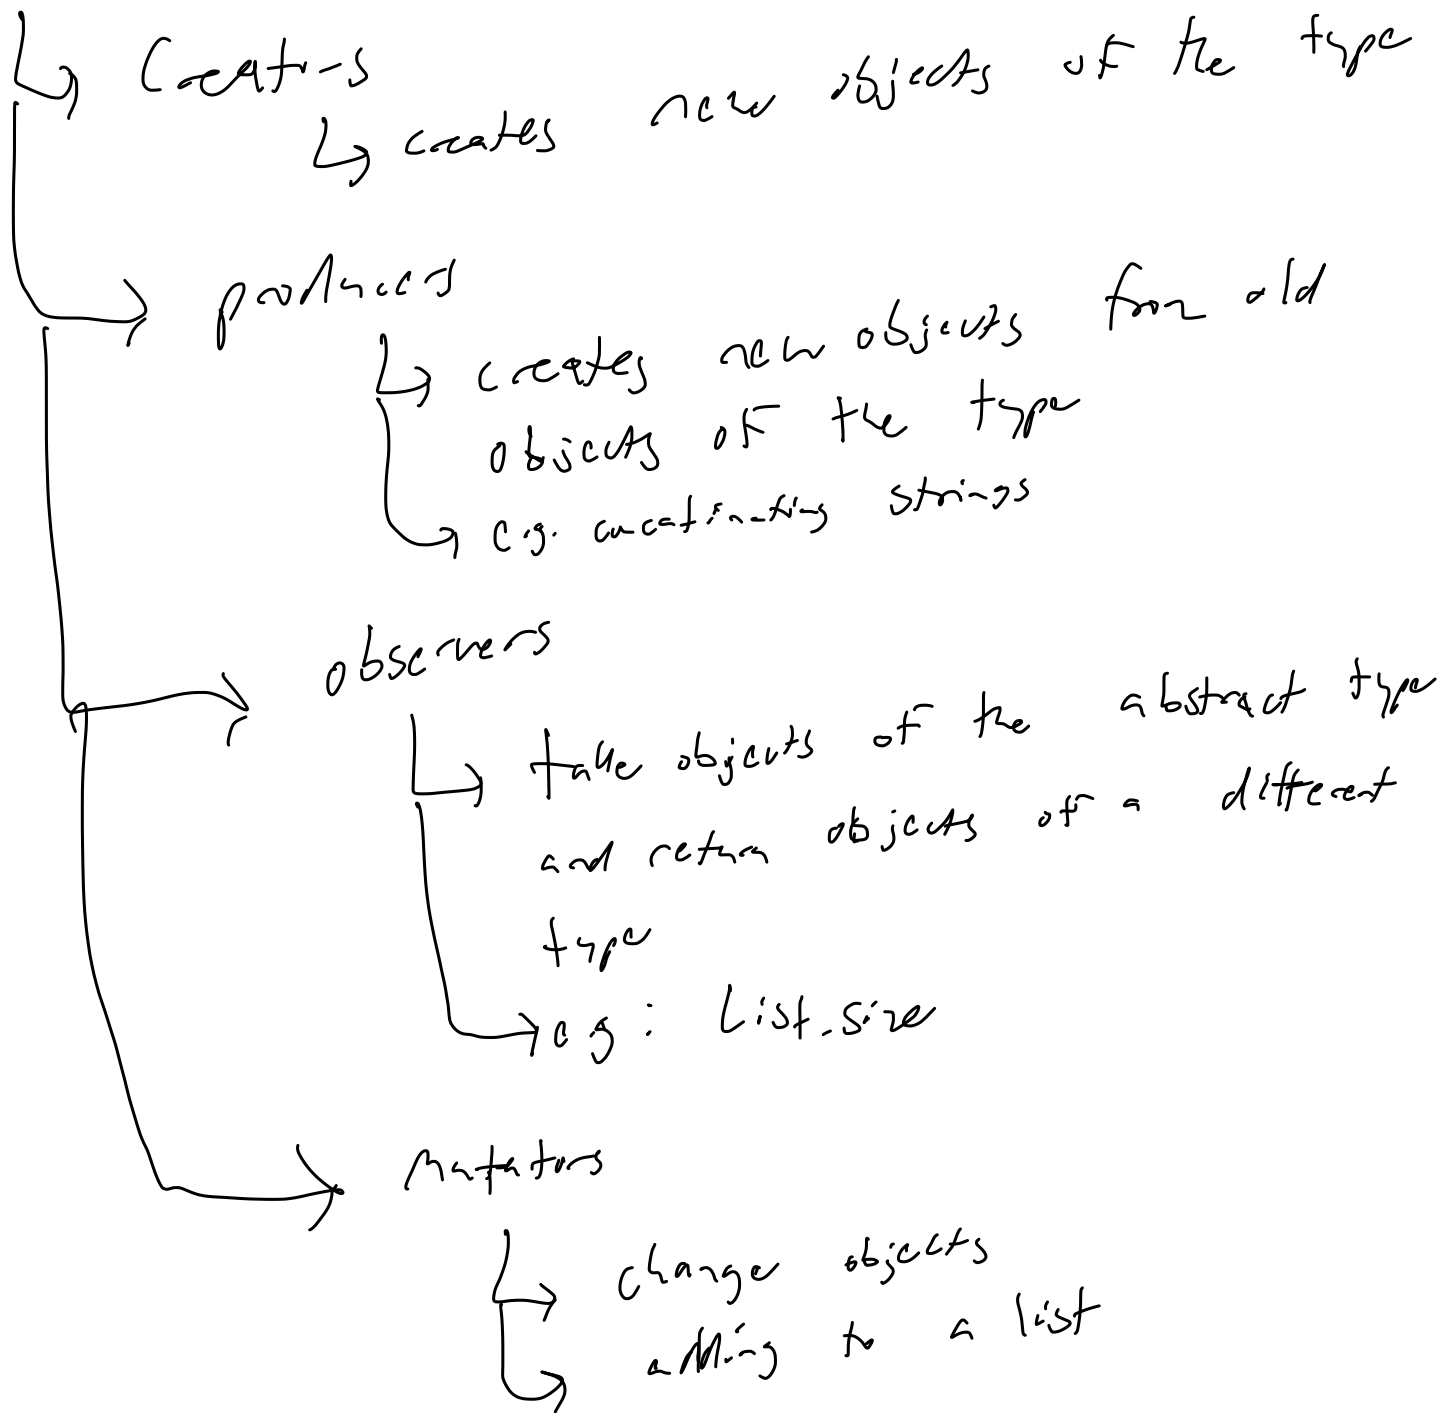 Creators
creates new objects of the type
producers
creates new objects from old
objects of the type
e.g. concatinating strings
observers
take objects of the abstract type
and return objects of a different
type
eg: List.size
Mutators
change objects
adding to a list